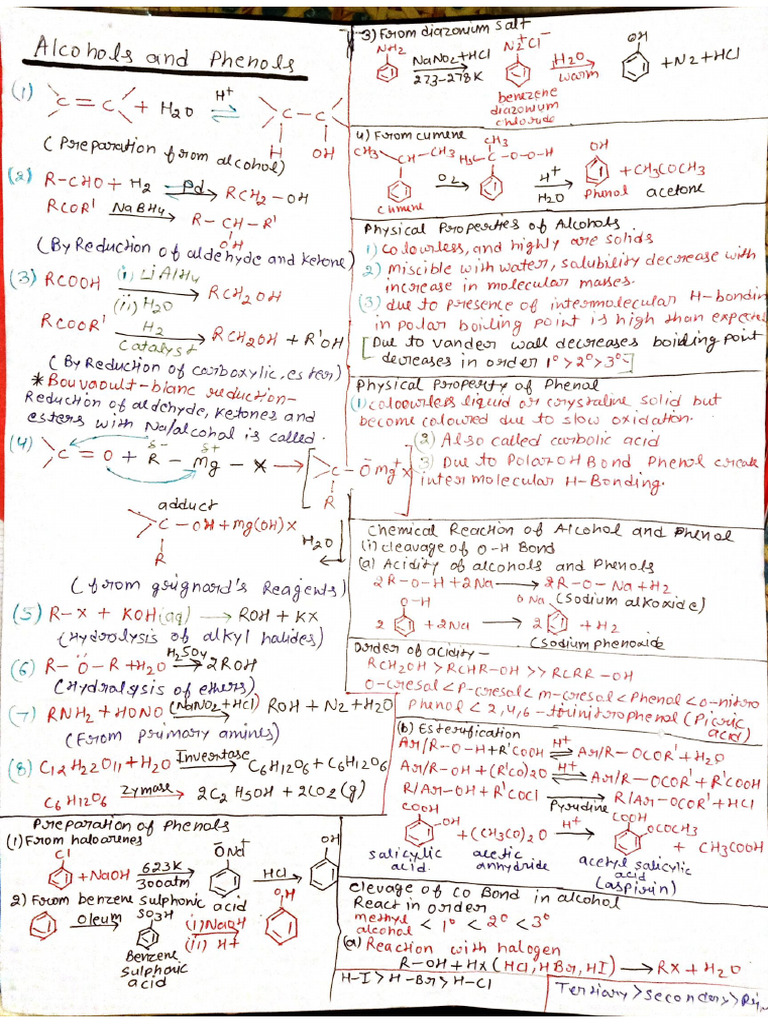 Alcohols and Phenols
(1) >C=C< + H2O ⇌ >C-C<
H+
H OH
(Preparation from alcohol)
(2) R-CHO + H2 Pd → RCH2-OH
RCOR' NaBH4 → R-CH-R'
OH
(By Reduction of aldehyde and ketone)
(3) RCOOH (i) LiAlH4 → RCH2OH
(ii) H2O
RCOOR' H2 → RCH2OH + R'OH
Catalyst
(By Reduction of carboxylic, ester)
*Bouvaoult-blanc reduction-
Reduction of aldehyde, ketones and
esters with Na/alcohol is called.
(4) >C=O + R - Mg - X → [>C-ŌMg+X]
δ- δ+
R
adduct
>C-OH + mg(OH)X
H2O
R
(from grignard's Reagents)
(5) R-X + KOH(aq) → ROH + KX
(Hydrolysis of alkyl halides)
(6) R-Ö-R + H2O H2SO4 → 2ROH
(Hydralysis of ethers)
(7) RNH2 + HONO (NaNO2+HCl) → ROH + N2 + H2O
(From primary amines)
(8) C12H22O11 + H2O Invertase → C6H12O6 + C6H12O6
C6H12O6 Zymase → 2C2H5OH + 2CO2(g)
Preparation of Phenols
(1) From haloarenes
Cl ŌNa+ OH
+NaOH 623K → HCl →
300atm
2) From benzene sulphonic acid
Oleum → SO3H (i) NaOH → OH
(ii) H+
Benzene
sulphonic
acid
3) From diazonium salt
NH2 NaNO2+HCl → N2+Cl- H2O → OH +N2+HCl
273-278K warm
benezene
diazonium
chloride
4) From cumene
CH3 CH-CH3 CH3 OH
H3C-C-O-O-H
O2 → H+ → +CH3COCH3
H2O
cumene Phenol acetone
Physical Properties of Alcohols
1) colourless, and highly are solids
2) miscible with water, solubility decrease with
increase in molecular masses.
(3) due to presence of intermolecular H-bondin
in polar boiling point is high than expected
[Due to vander wall decreases boiding point
decreases in order 1°>2°>3°]
Physical Property of Phenol
(1) coloourless liquid or crystaline solid but
become coloured due to slow oxidation.
(2) Also called carbolic acid
(3) Due to Polar OH Bond Phenol create
inter molecular H-Bonding.
Chemical Reaction of Alcohol and Phenol
(i) cleavage of O-H Bond
(a) Acidity of alcohols and Phenols
2R-O-H + 2Na → 2R-O-Na + H2
(Sodium alkoxide)
O-H O Na
2 + 2Na → 2 + H2
(Sodium phenoxide
Order of acidity-
RCH2OH > RCHR-OH >> RCRR-OH
O-cresol < P-cresol < m-cresol < Phenol < o-nitro
phenol < 2,4,6-trinitrophenol (Picric
acid)
(b) Esterification
Ar/R-O-H + R'COOH H+ ⇌ Ar/R-OCOR' + H2O
Ar/R-OH + (R'CO)2O H+ ⇌ Ar/R-OCOR' + R'COOH
R/Ar-OH + R'COCl → R/Ar-OCOR' + HCl
Pyridine
COOH COOH
OH + (CH3CO)2O H+ → OCOCH3 + CH3COOH
salicylic acid. acetic anhydride acetyl salicylic
acid
(aspirin)
Clevage of CO Bond in alcohol
React in order
methyl
alcohol < 1° < 2° < 3°
(a) Reaction with halogen
R-OH + HX (HCl, HBr, HI) → RX + H2O
H-I > H-Br > H-Cl
Tertiary > secondary >